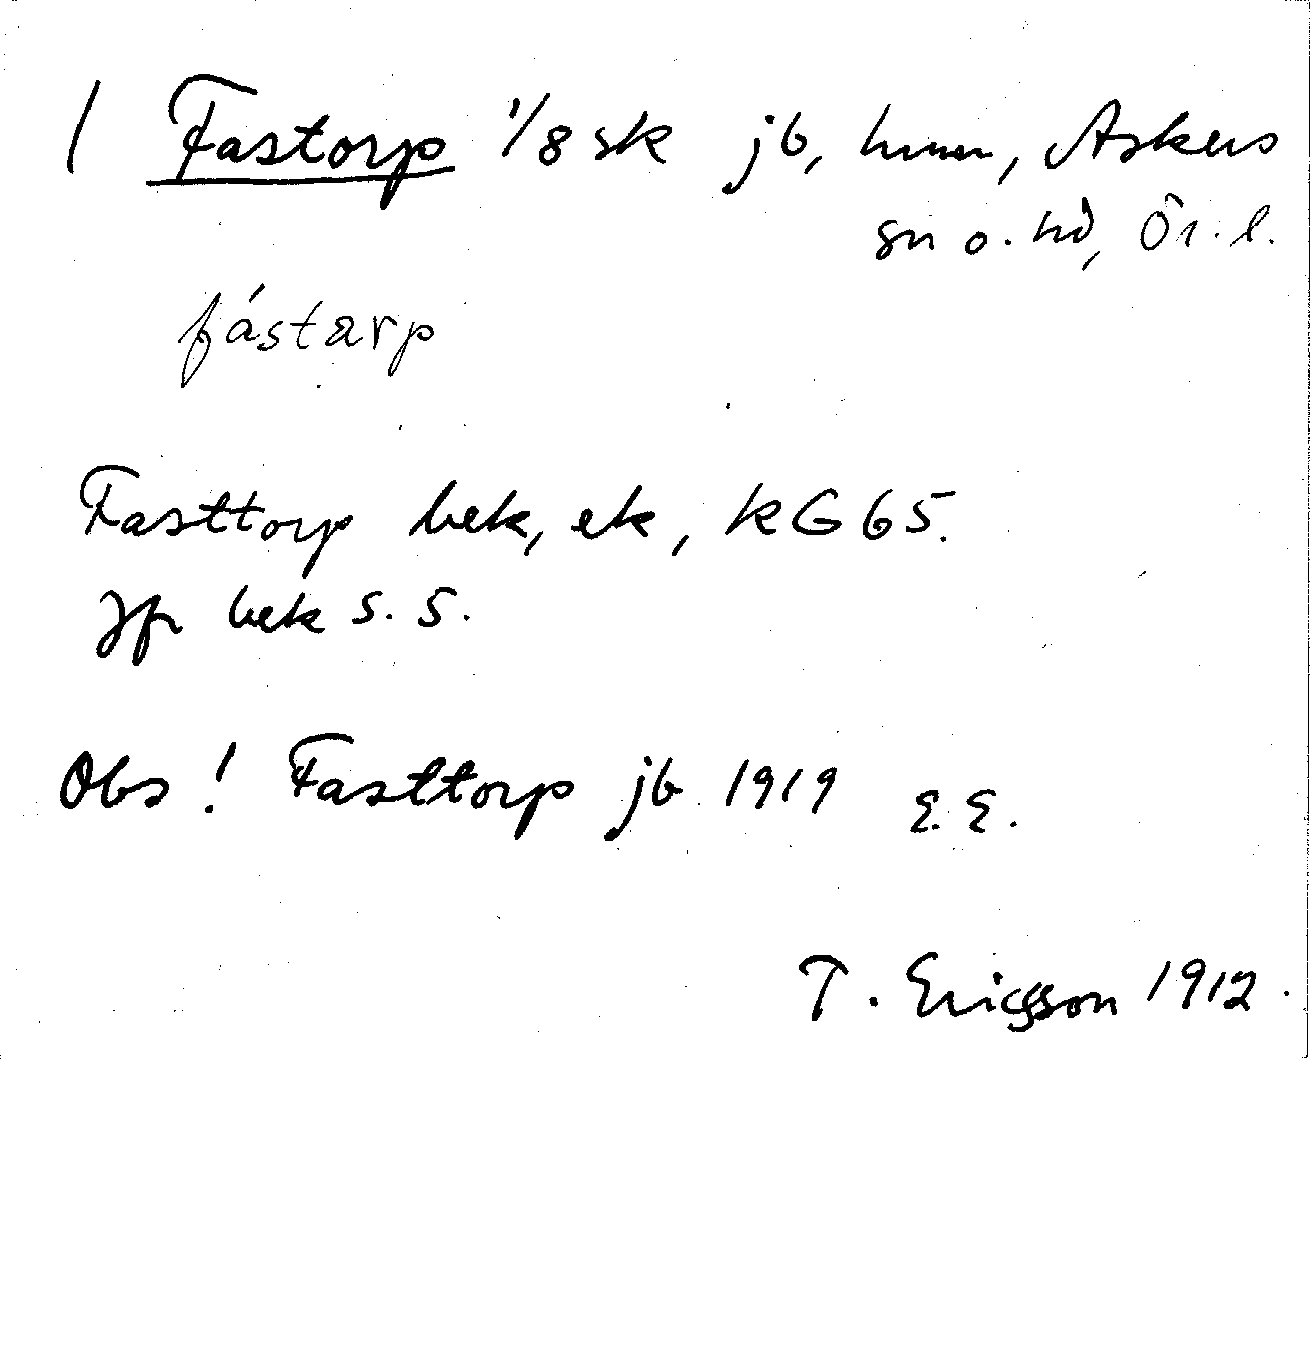 / Fastorp 1/8 sk jb, hmn, Askers
sn o. hd, Ör. l.
fástarp
Fasttorp bek, ek, KG 65.
Jfr bek S. 5.
Obs! Fasttorp jb 1919 E. E.
T. Ericsson 1912.